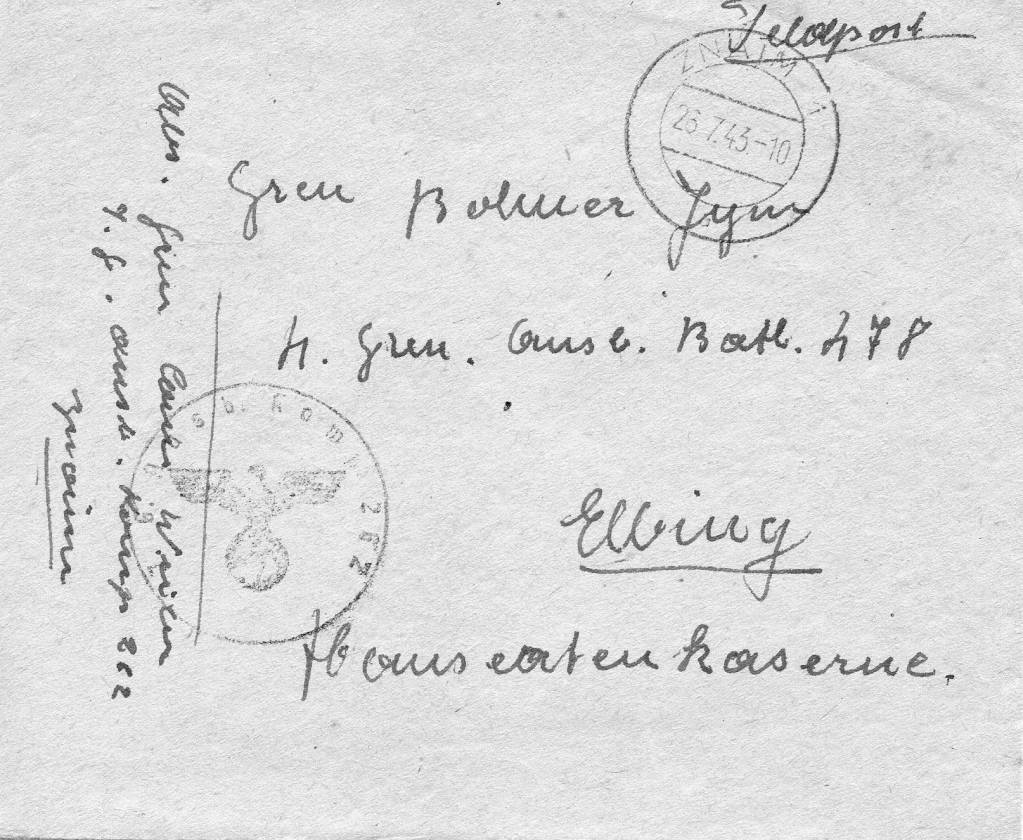 Feldpost
ZNAIM 1
26.7.43-10
Gren Bohmer
4. Gren. Ausb. Batl. 478
Elbing
Hanseatenkaserne.
Abs. Gren
J. G. Ausb. Komp 262
Znaim
sb. Komp 262